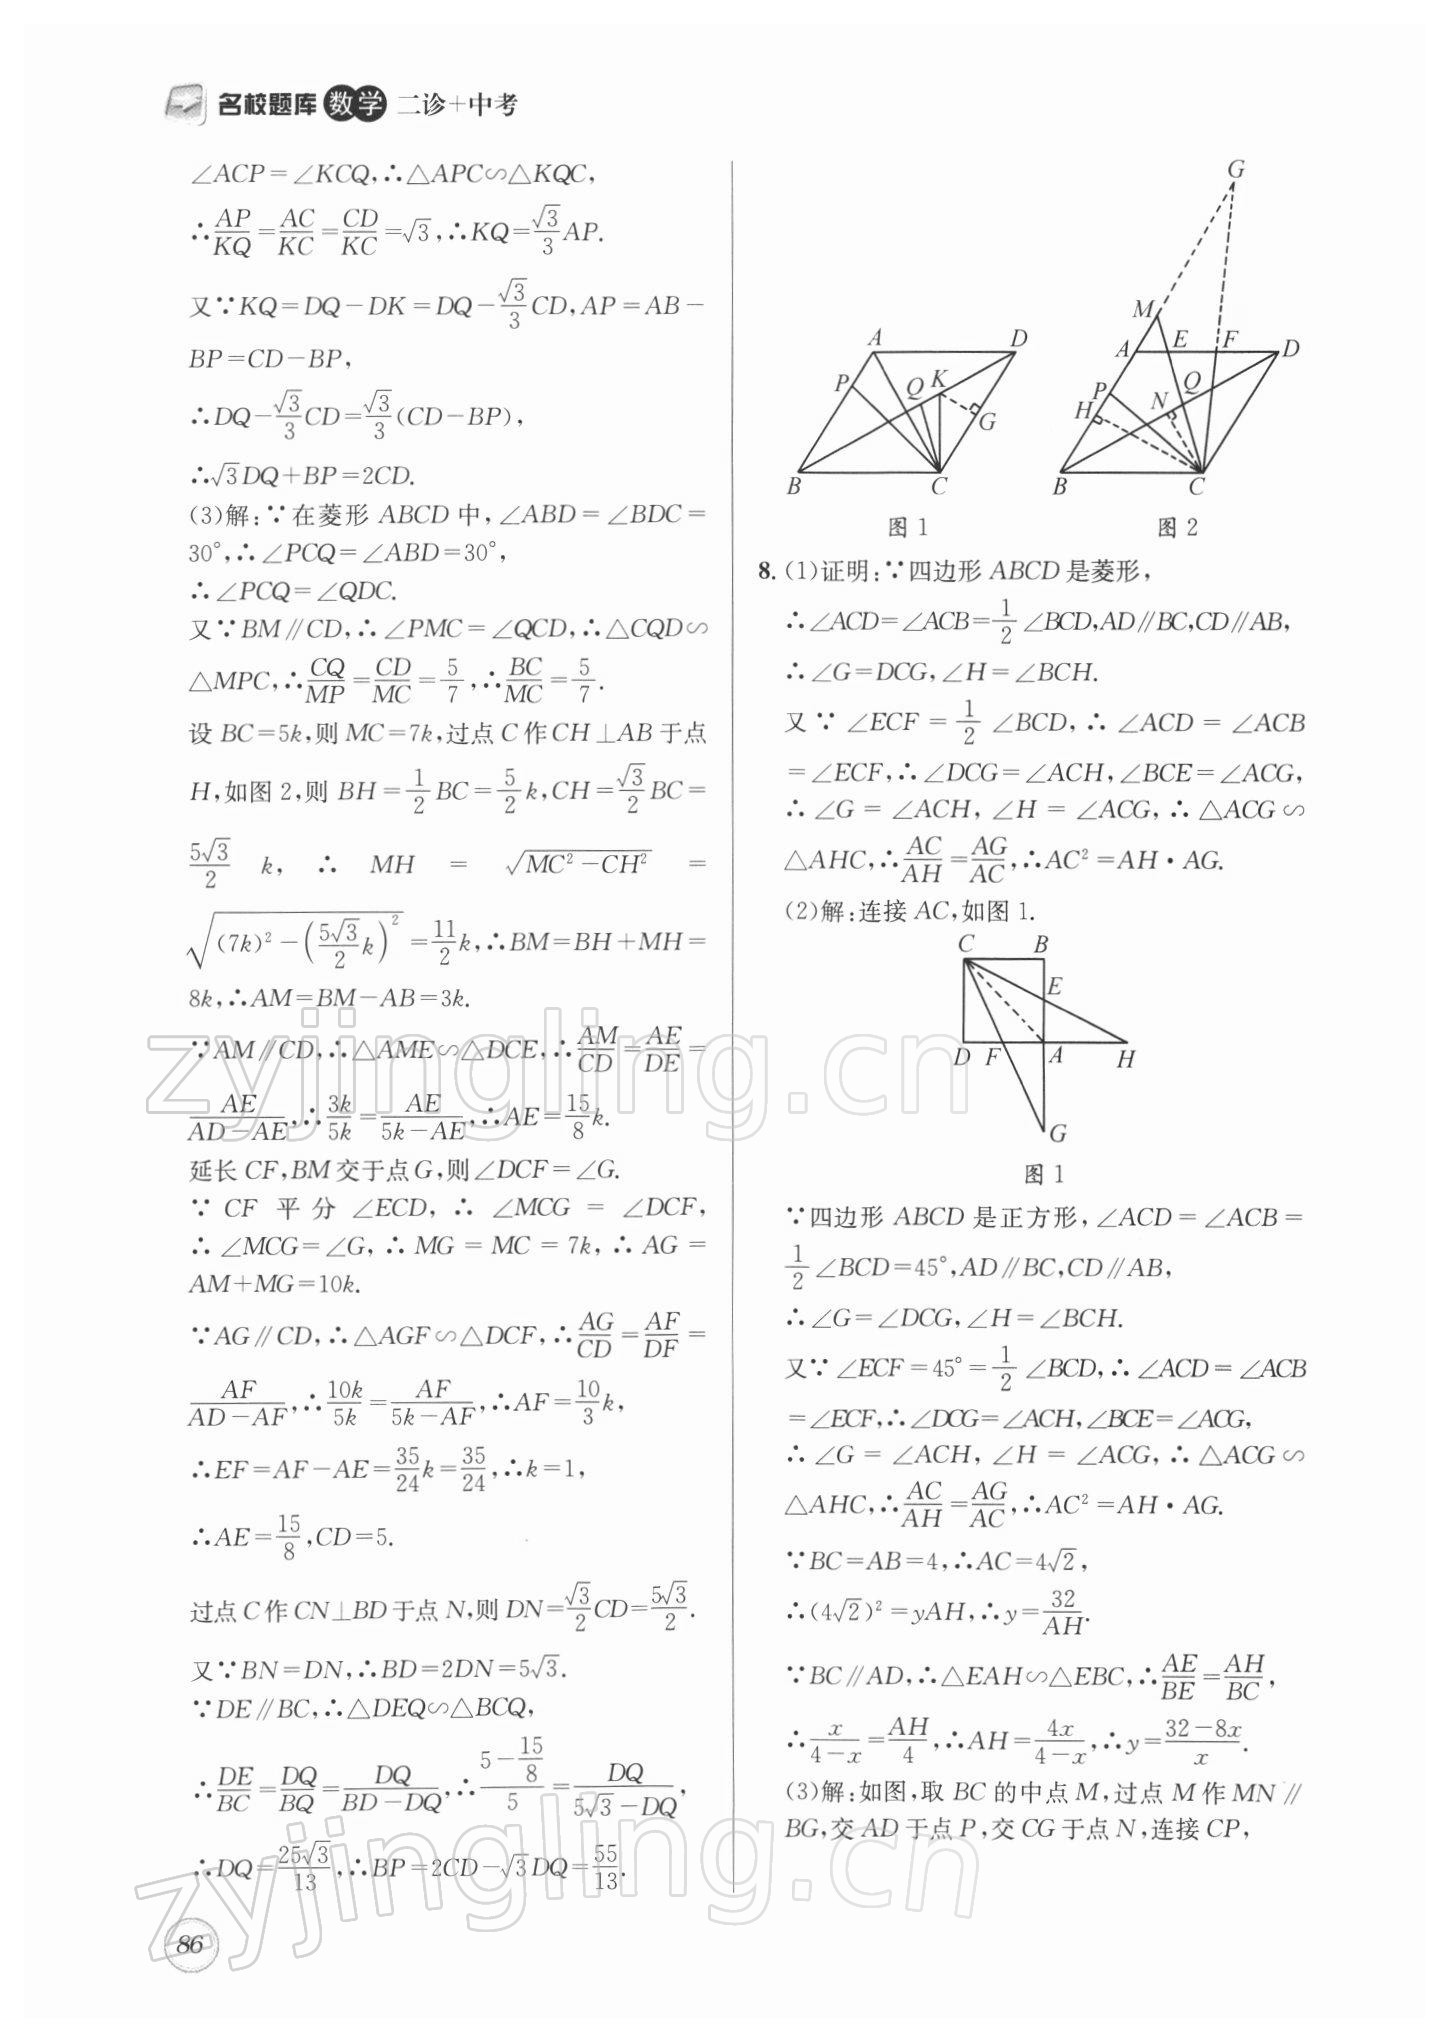 名校题库 数学 二诊+中考
∠ACP=∠KCQ,∴△APC∽△KQC,
∴AP/KQ=AC/KC=CD/KC=√3,∴KQ=√3/3 AP.
又∵KQ=DQ-DK=DQ-√3/3 CD,AP=AB-
BP=CD-BP,
∴DQ-√3/3 CD=√3/3(CD-BP),
∴√3DQ+BP=2CD.
(3)解:∵在菱形 ABCD 中,∠ABD=∠BDC=
30°,∴∠PCQ=∠ABD=30°,
∴∠PCQ=∠QDC.
又∵BM∥CD,∴∠PMC=∠QCD,∴△CQD∽
△MPC,∴CQ/MP=CD/MC=5/7,∴BC/MC=5/7.
设 BC=5k,则 MC=7k,过点 C 作 CH⊥AB 于点
H,如图 2,则 BH=1/2 BC=5/2 k,CH=√3/2 BC=
5√3/2 k,∴MH=√(MC²-CH²)=
√((7k)²-(5√3/2 k)²)=11/2 k,∴BM=BH+MH=
8k,∴AM=BM-AB=3k.
∵AM∥CD,∴△AME∽△DCE,∴AM/CD=AE/DE=
AE/(AD-AE),∴3k/5k=AE/(5k-AE),∴AE=15/8 k.
延长 CF,BM 交于点 G,则∠DCF=∠G.
∵CF 平分∠ECD,∴∠MCG=∠DCF,
∴∠MCG=∠G,∴MG=MC=7k,∴AG=
AM+MG=10k.
∵AG∥CD,∴△AGF∽△DCF,∴AG/CD=AF/DF=
AF/(AD-AF),∴10k/5k=AF/(5k-AF),∴AF=10/3 k,
∴EF=AF-AE=35/24 k=35/24,∴k=1,
∴AE=15/8,CD=5.
过点 C 作 CN⊥BD 于点 N,则 DN=√3/2 CD=5√3/2.
又∵BN=DN,∴BD=2DN=5√3.
∵DE∥BC,∴△DEQ∽△BCQ,
∴DE/BC=DQ/BQ=DQ/(BD-DQ),∴(5-15/8)/5=DQ/(5√3-DQ),
∴DQ=25√3/13,∴BP=2CD-√3DQ=55/13.
86
A D P Q K G B C
图 1
G M A E F D P Q H N B C
图 2
8. (1)证明:∵四边形 ABCD 是菱形,
∴∠ACD=∠ACB=1/2∠BCD,AD∥BC,CD∥AB,
∴∠G=DCG,∠H=∠BCH.
又∵∠ECF=1/2∠BCD,∴∠ACD=∠ACB
=∠ECF,∴∠DCG=∠ACH,∠BCE=∠ACG,
∴∠G=∠ACH,∠H=∠ACG,∴△ACG∽
△AHC,∴AC/AH=AG/AC,∴AC²=AH·AG.
(2)解:连接 AC,如图 1.
C B E D F A H G
图 1
∵四边形 ABCD 是正方形,∠ACD=∠ACB=
1/2∠BCD=45°,AD∥BC,CD∥AB,
∴∠G=∠DCG,∠H=∠BCH.
又∵∠ECF=45°=1/2∠BCD,∴∠ACD=∠ACB
=∠ECF,∴∠DCG=∠ACH,∠BCE=∠ACG,
∴∠G=∠ACH,∠H=∠ACG,∴△ACG∽
△AHC,∴AC/AH=AG/AC,∴AC²=AH·AG.
∵BC=AB=4,∴AC=4√2,
∴(4√2)²=yAH,∴y=32/AH.
∵BC∥AD,∴△EAH∽△EBC,∴AE/BE=AH/BC,
∴x/(4-x)=AH/4,∴AH=4x/(4-x),∴y=(32-8x)/x.
(3)解:如图,取 BC 的中点 M,过点 M 作 MN∥
BG,交 AD 于点 P,交 CG 于点 N,连接 CP,
zyjingling.cn
zyjingling.cn